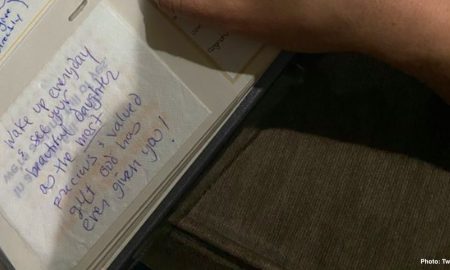 Wake up everyday
& see your
beautiful daughter
as the most
precious & valued
gift God has
ever given you!
Photo: Tw